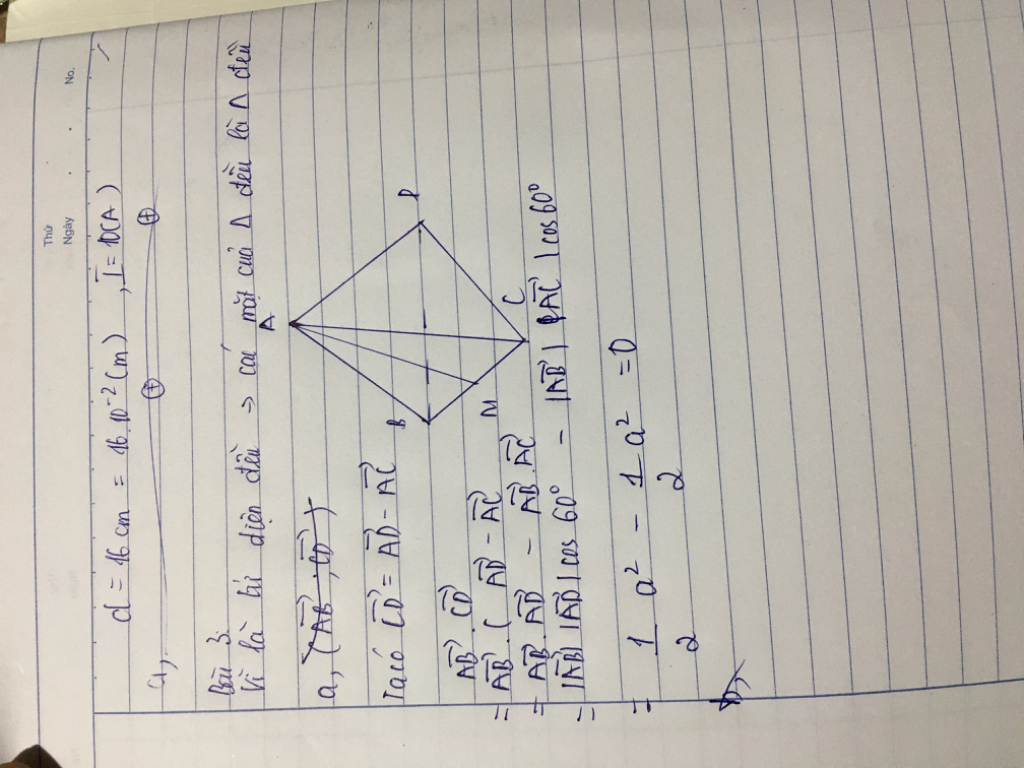 Thứ
Ngày
No.
d = 16 cm = 16.10⁻² (m) , I = 10(A)
a,
Bài 3.
Vì là tứ diện đều => các mặt của Δ đều là Δ đều
a, (AB→ ; CD→)
Ta có CD→ = AD→ - AC→
A
B
D
M
C
AB→ . CD→
= AB→ . ( AD→ - AC→
= AB→ . AD→ - AB→ . AC→
= |AB→| |AD→| cos 60° - |AB→| |AC→| cos 60°
= 1/2 a² - 1/2 a² = 0
b,